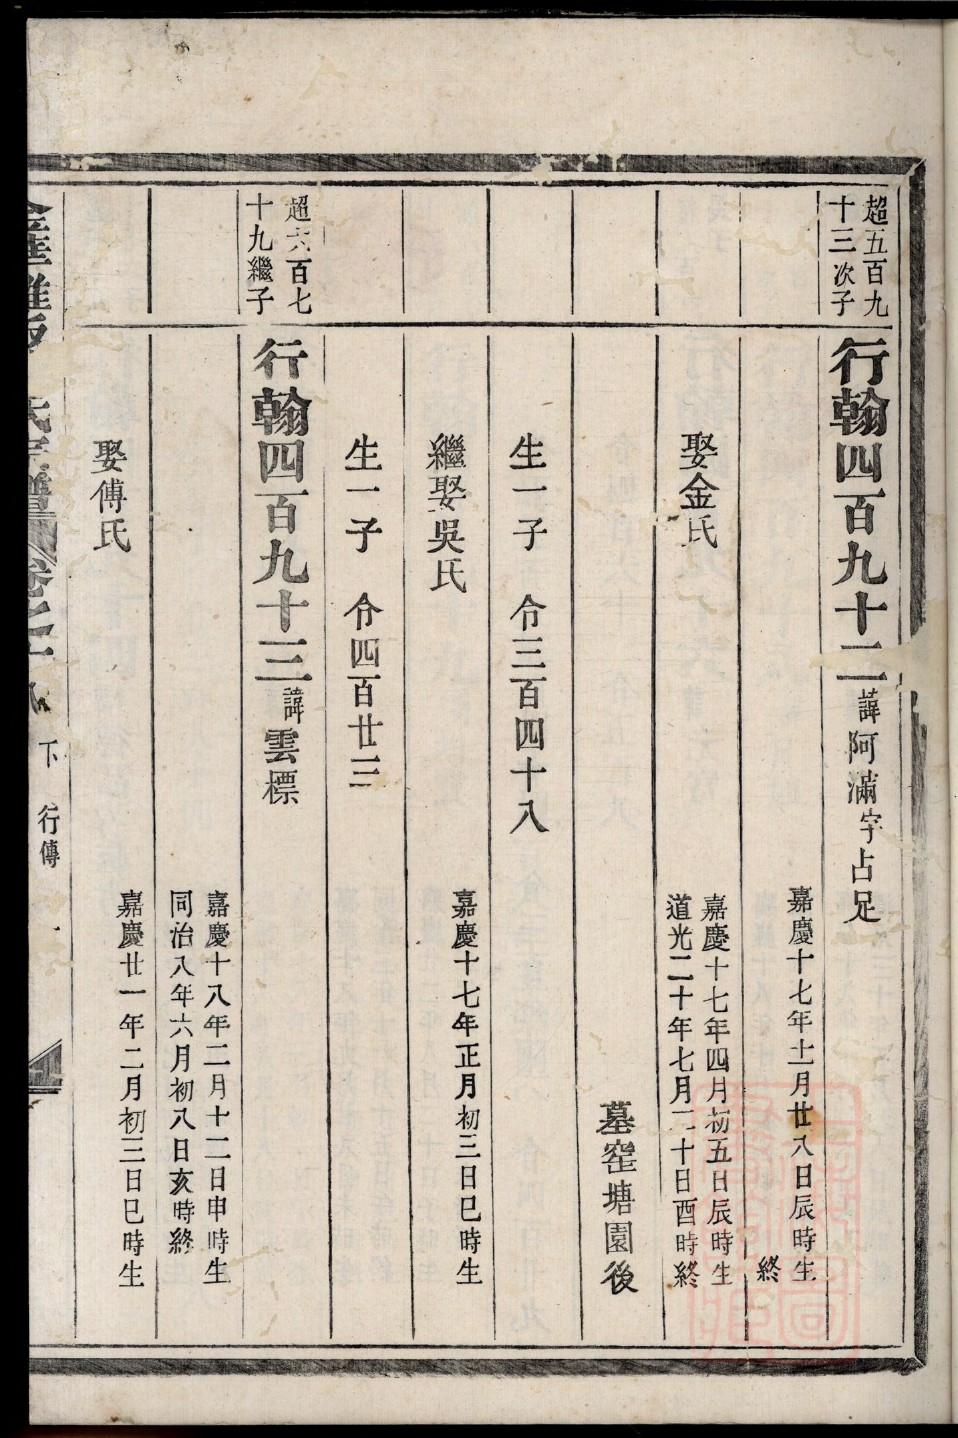 超五百九
十三次子
行翰四百九十二諱阿滿字占足
嘉慶十七年十一月廿八日辰時生
終
娶金氏
嘉慶十七年四月初五日辰時生
道光二十年七月二十日酉時終
墓窑塘園後
生一子 令三百四十八
繼娶吳氏
嘉慶十七年正月初三日巳時生
生一子 令四百廿三
超六百七
十九繼子
行翰四百九十三諱雲標
嘉慶十八年二月十二日申時生
同治八年六月初八日亥時終
娶傅氏
嘉慶廿一年二月初三日巳時生
氏宗譜 卷之十八 下 行傳